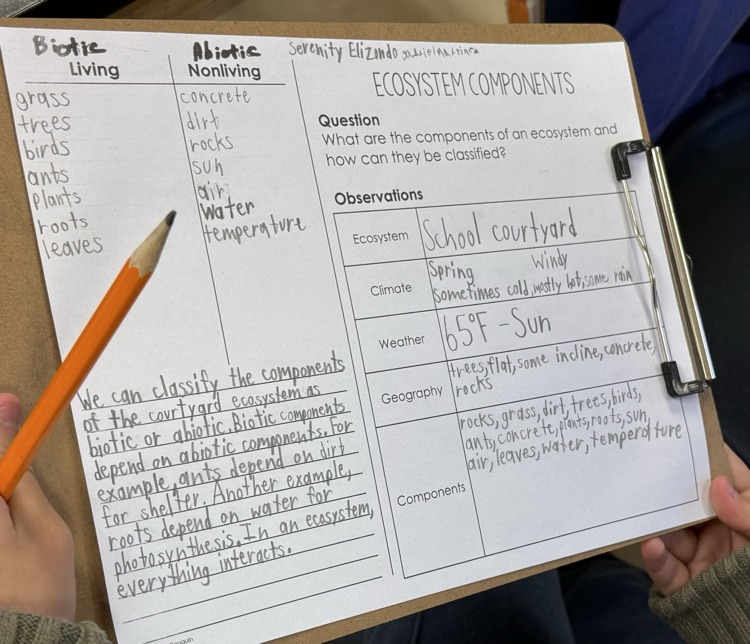 Biotic Abiotic
Living Nonliving
grass concrete
trees dirt
birds rocks
ants sun
plants air
roots water
leaves temperature
We can classify the components
of the courtyard ecosystem as
biotic or abiotic. Biotic components
depend on abiotic components. For
example, ants depend on dirt
for shelter. Another example,
roots depend on water for
photosynthesis. In an ecosystem,
everything interacts.
Serenity Elizondo
ECOSYSTEM COMPONENTS
Question
What are the components of an ecosystem and
how can they be classified?
Observations
Ecosystem School courtyard
Climate Spring Windy
Sometimes cold, mostly hot, some rain
Weather 65°F - Sun
Geography trees, flat, some incline, concrete,
rocks
Components rocks, grass, dirt, trees, birds,
ants, concrete, plants, roots, sun,
air, leaves, water, temperature